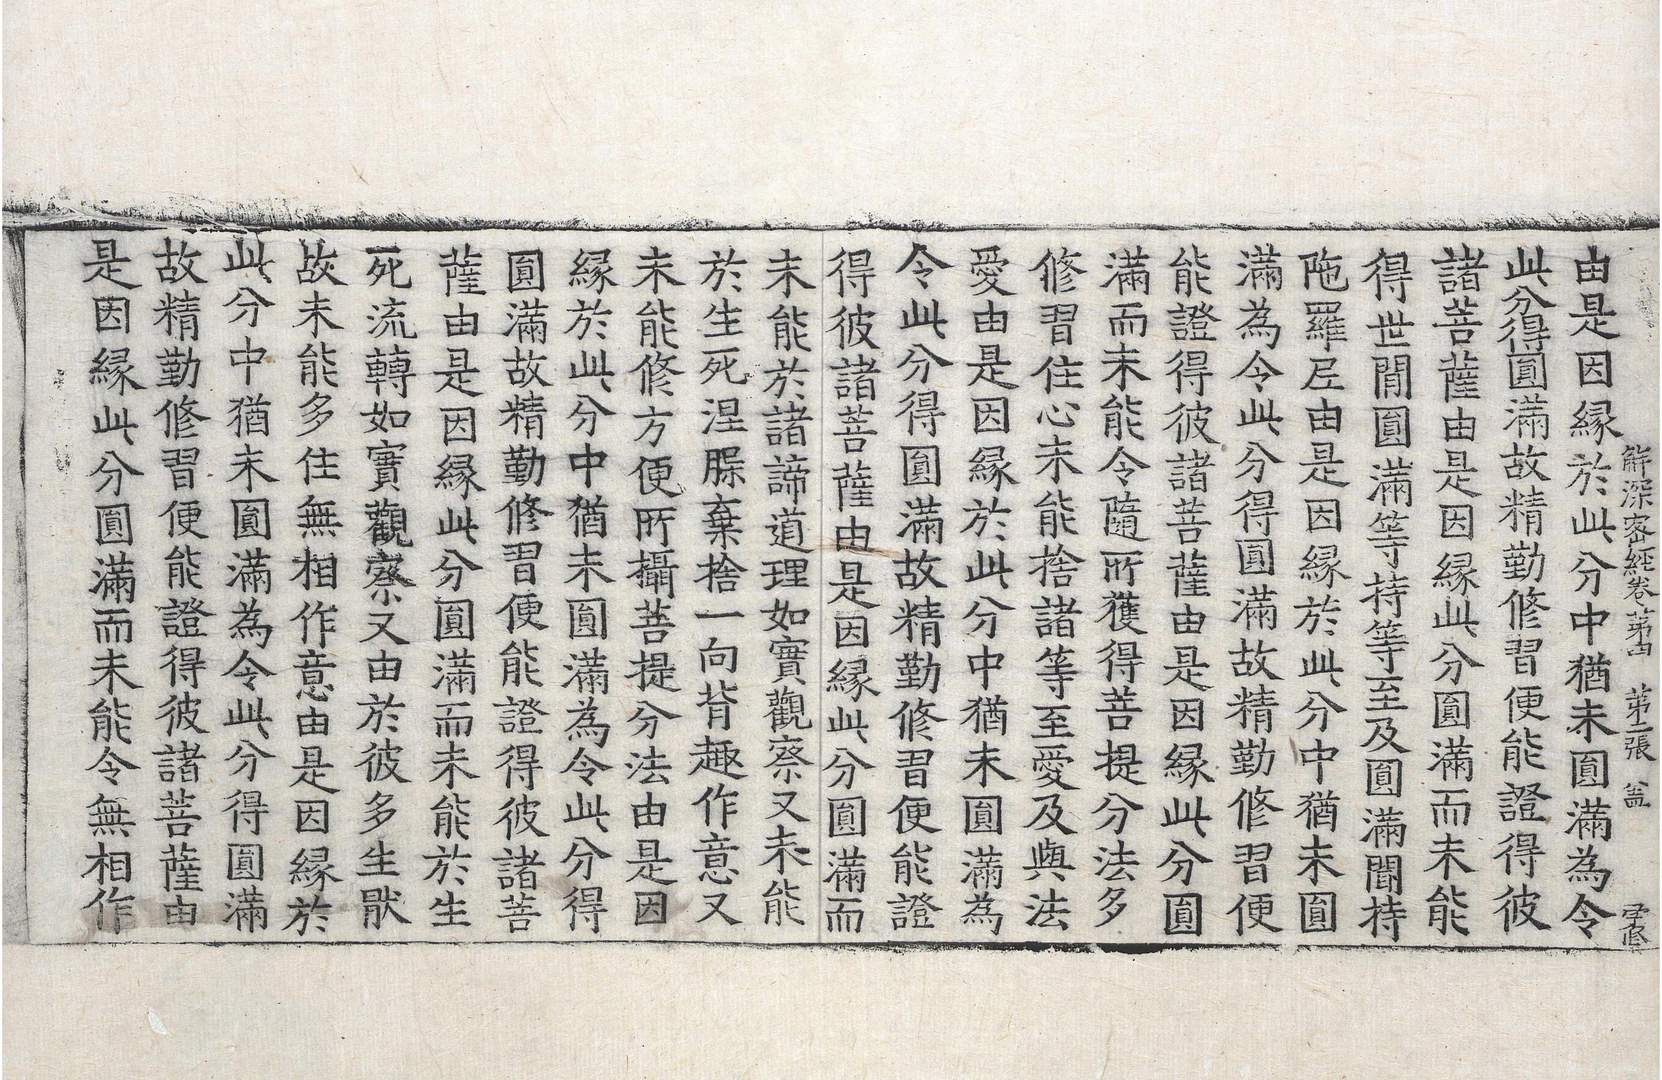 解深密經卷第四 第二張 㿽
由是因緣於此分中猶未圓滿為令
此分得圓滿故精勤修習便能證得彼
諸菩薩由是因緣此分圓滿而未能
得世間圓滿等持等至及圓滿聞持
陁羅尼由是因緣於此分中猶未圓
滿為令此分得圓滿故精勤修習便
能證得彼諸菩薩由是因緣此分圓
滿而未能令隨所獲得菩提分法多
修習住心未能捨諸等至愛及與法
愛由是因緣於此分中猶未圓滿為
令此分得圓滿故精勤修習便能證
得彼諸菩薩由是因緣此分圓滿而
未能於諸諦道理如實觀察又未能
於生死涅槃棄捨一向背趣作意又
未能修方便所攝菩提分法由是因
緣於此分中猶未圓滿為令此分得
圓滿故精勤修習便能證得彼諸菩
薩由是因緣此分圓滿而未能於生
死流轉如實觀察又由於彼多生猒
故未能多住無相作意由是因緣於
此分中猶未圓滿為令此分得圓滿
故精勤修習便能證得彼諸菩薩由
是因緣此分圓滿而未能令無相作